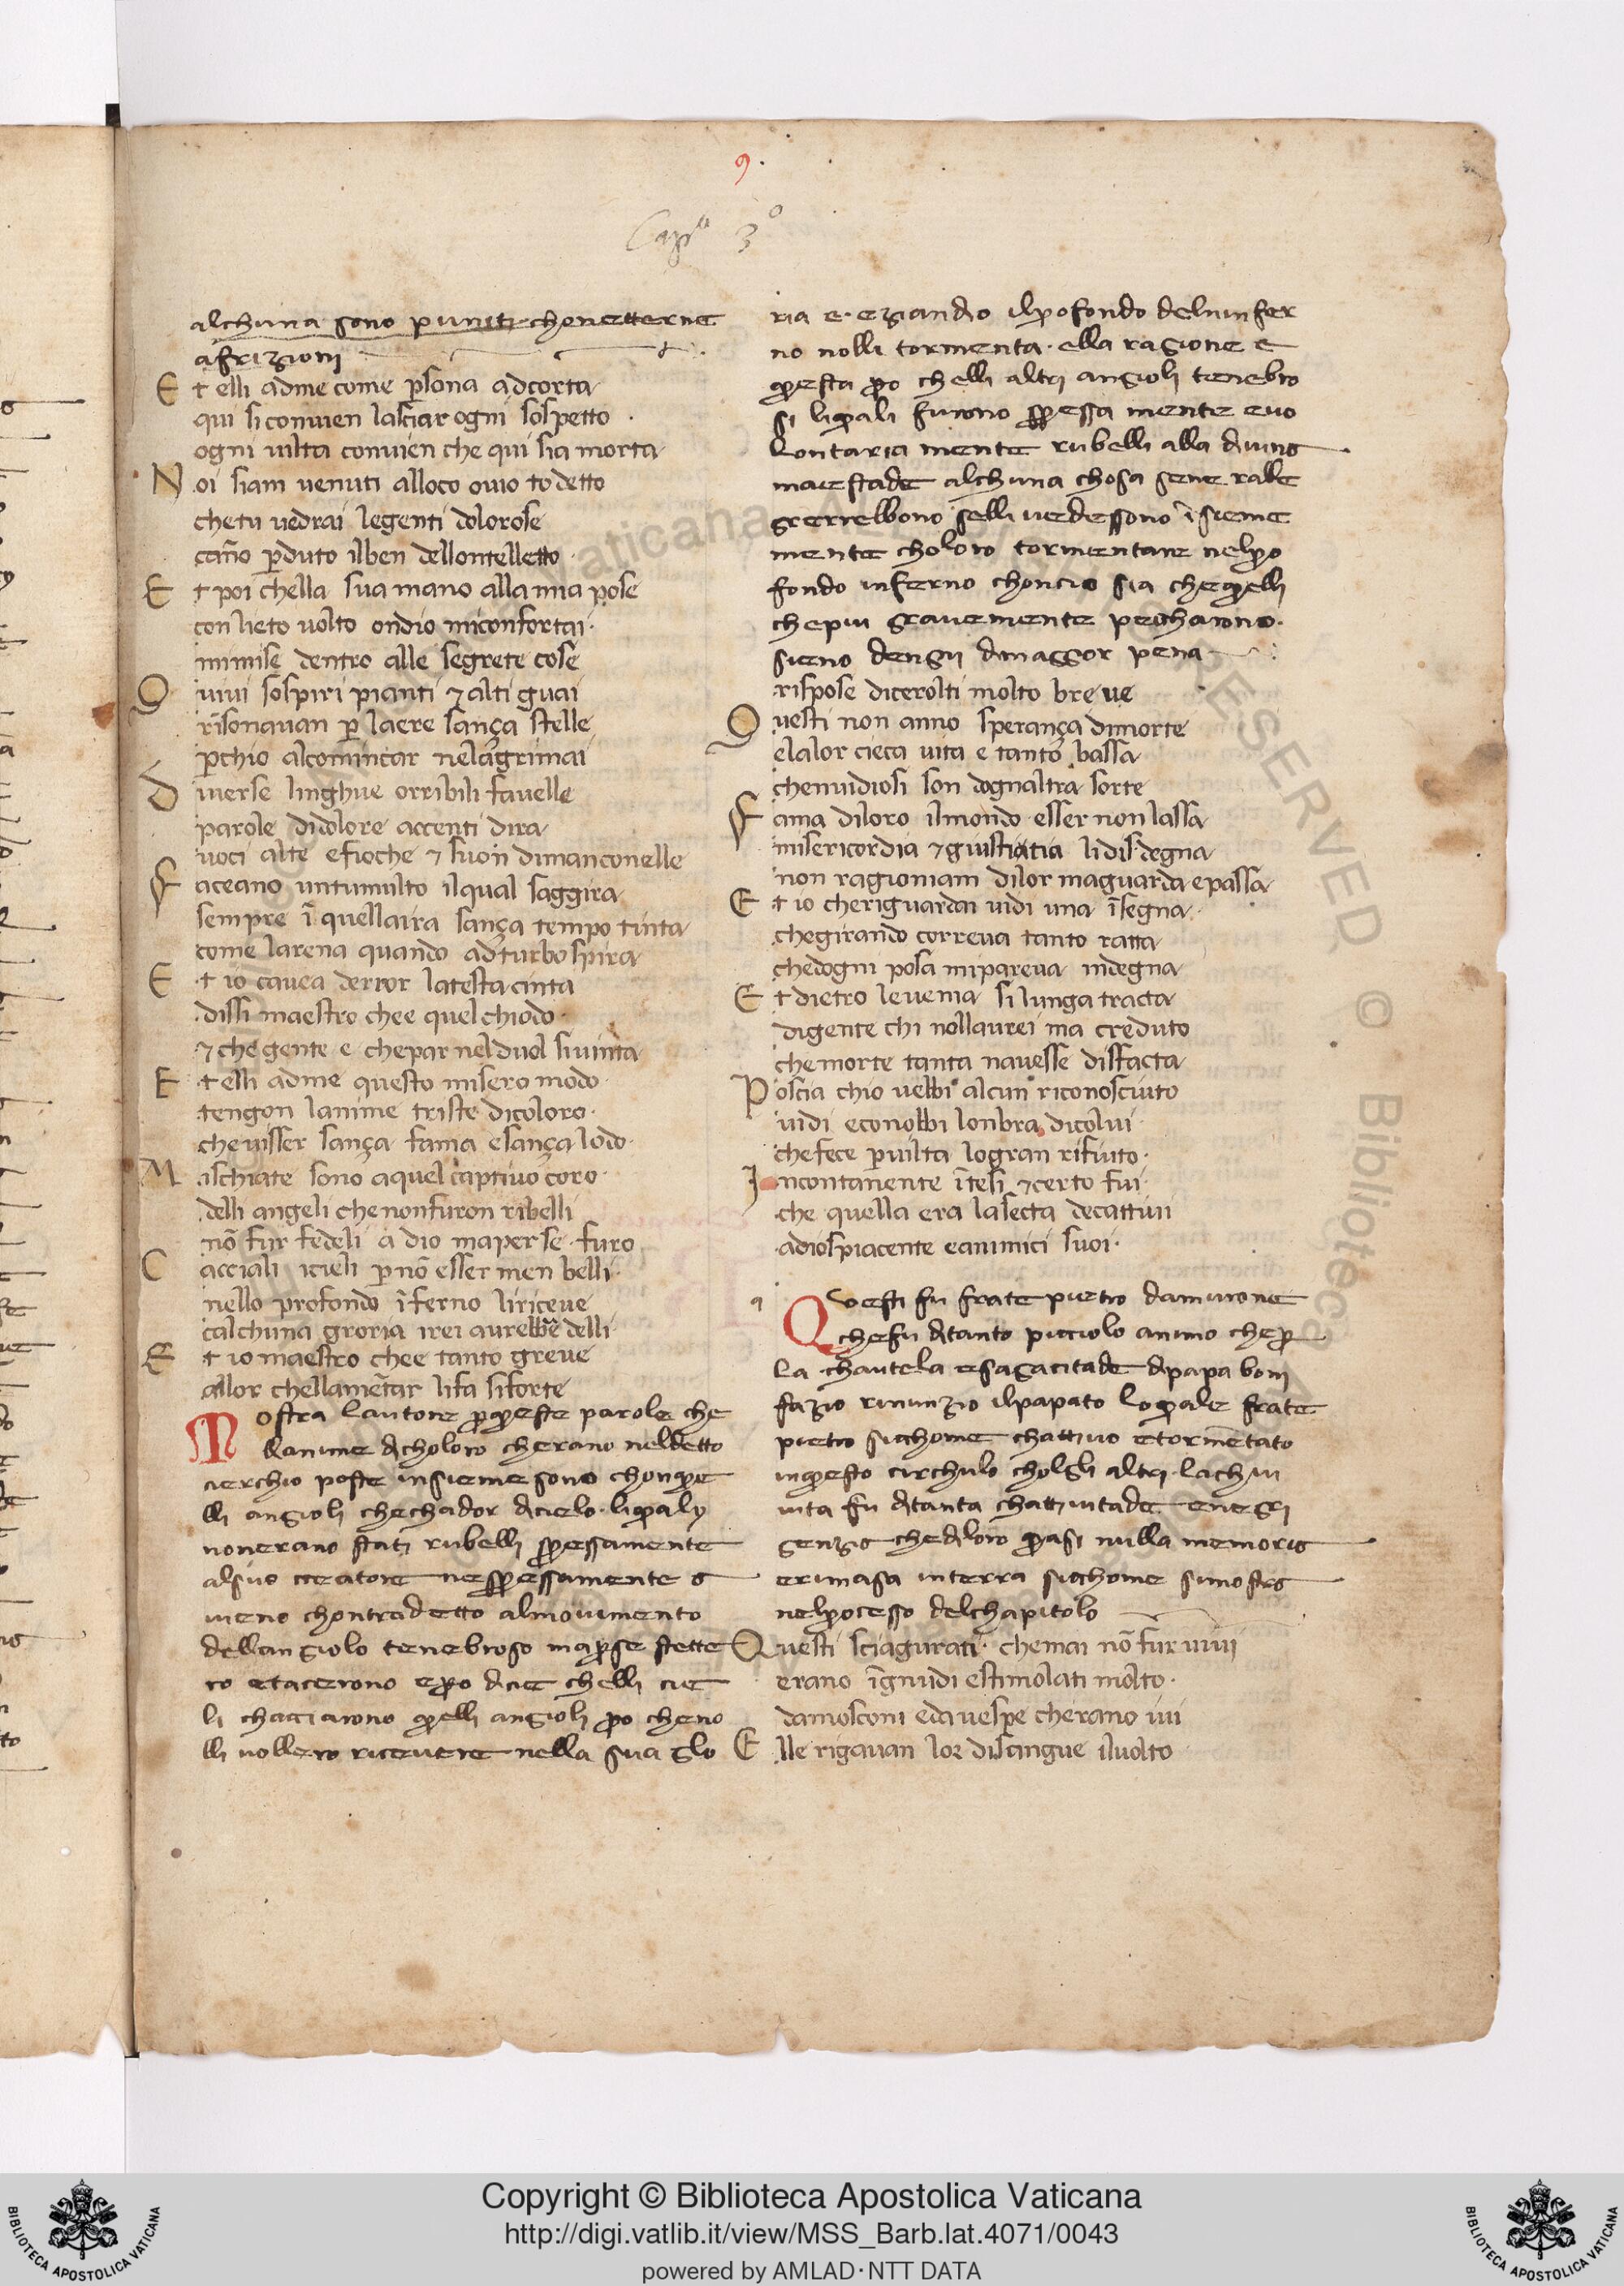 9.
Capi° 3°
alchuna sono puniti chonetterne
afrizioni
Et elli adme come p̱sona adcorta
qui si convien lasciar ogni sospetto
ogni uilta convien che qui sia morta
Noi siam uenuti alloco ovio to detto
chetu uedrai legenti dolorose
canño p̱duto ilben dellontelletto
Et poi chella sua mano alla mia pose
con lieto uolto ondio miconfortai
mimise dentro alle segrete cose
Quiui sospiri pianti ⁊ alti guai
risonauan p̱ laere sança stelle
p̱chio alcomincar nelagrimai
Diuerse linghue orribili fauelle
parole didolore accenti dira
uoci alte e fioche ⁊ suon dimanconelle
Faceano untumulto ilqual saggira
sempre ī quellaira sança tempo tinta
come larena quando adturbo spira
Et io cauea derror latesta cinta
dissi maestro chee quel chiodo
⁊ che gente e chepar nelduol siuinta
Et elli adme questo misero modo
tengon lanime triste dicoloro
cheuisser sança fama esança lodo
Mischiate sono aquel captiuo coro
delli angeli chenonfuron ribelli
nō fur fedeli a dio maperse furo
Cacciali icieli p̱ nō esser men belli
nello profondo īferno liriceue
calchuna groria irei aurebbē delli
Et io maestro chee tanto greue
allor chellamētar lifa siforte
Mostra lautore p̱ q̱ueste parole che
llanime dicholoro cherano neldetto
cierchio poste insieme sono chonq̱ue
lli angioli chechador dicielo liq̱uali
nonerano stati rubelli sp̱ressamente
alsuo creatore nesp̱ressamente a
ueno chontradetto almouimento
dellangiolo tenebroso map̱se stette
ro etacerono ep̱o dice chelli cie
li chacciarono q̱uelli angioli p̱o cheno
lli uollero riceuere nella sua glo
ria e eziandio ilp̱ofondo delninfer
no nolli tormenta ella ragione e
q̱uesta p̱o chelli altri angioli tenebro
si liq̱uali furono sp̱ressa mente euo
lontaria mente rubelli alla diuina
maiestade alchuna chosa sene ralle
grerrebbono selli uedessono īsieme
mente choloro tormentare nelp̱o
fondo inferno choncio sia cheq̱uelli
chepiu grauemente pecharono
sieno dengni dimaggor pena
rispose dicerolti molto breue
Questi non anno sperança dimorte
elalor cieca uita e tanto bassa
chenuidiosi son dognaltra sorte
Fama diloro ilmondo esser non lassa
misericordia ⁊ giustiatia lidisdegna
non ragioniam dilor maguarda epassa
Et io cheriguardai uidi una īsegna
chegirando correua tanto ratta
chedogni posa mipareua indegna
Et dietro leuenia si lunga tracta
digente chi nollaurei ma creduto
chemorte tanta nauesse disfacta
Poscia chio uebbi alcun riconosciuto
uidi econobbi lonbra dicolui
chefece p̱uilta logran rifiuto
Incontanente ītesi ⁊ certo fui
che quella era lasecta decattiui
adiospiacente eanimici suoi
Questi fu frate pietro damurrone
chefu ditanto picciolo animo chep̱
la chautela esagacitade dipapa boni
fazio rinunzio ilpapato loq̱uale frate
pietro sicchome chattiuo etormētato
inq̱uesto circhulo cholgli altri lachui
uita fu ditanta chattiuitade enegri
genza chediloro q̱uasi nulla memoria
erimasa interra sicchome simostra
nelp̱ocesso delchapitolo
Questi sciagurati chemai nō fur uiui
erano īgnudi estimolati molto
damosconi eda uespe cherano iui
Elle rigauan lor disangue iluolto
Copyright © Biblioteca Apostolica Vaticana
http://digi.vatlib.it/view/MSS_Barb.lat.4071/0043
powered by AMLAD·NTT DATA